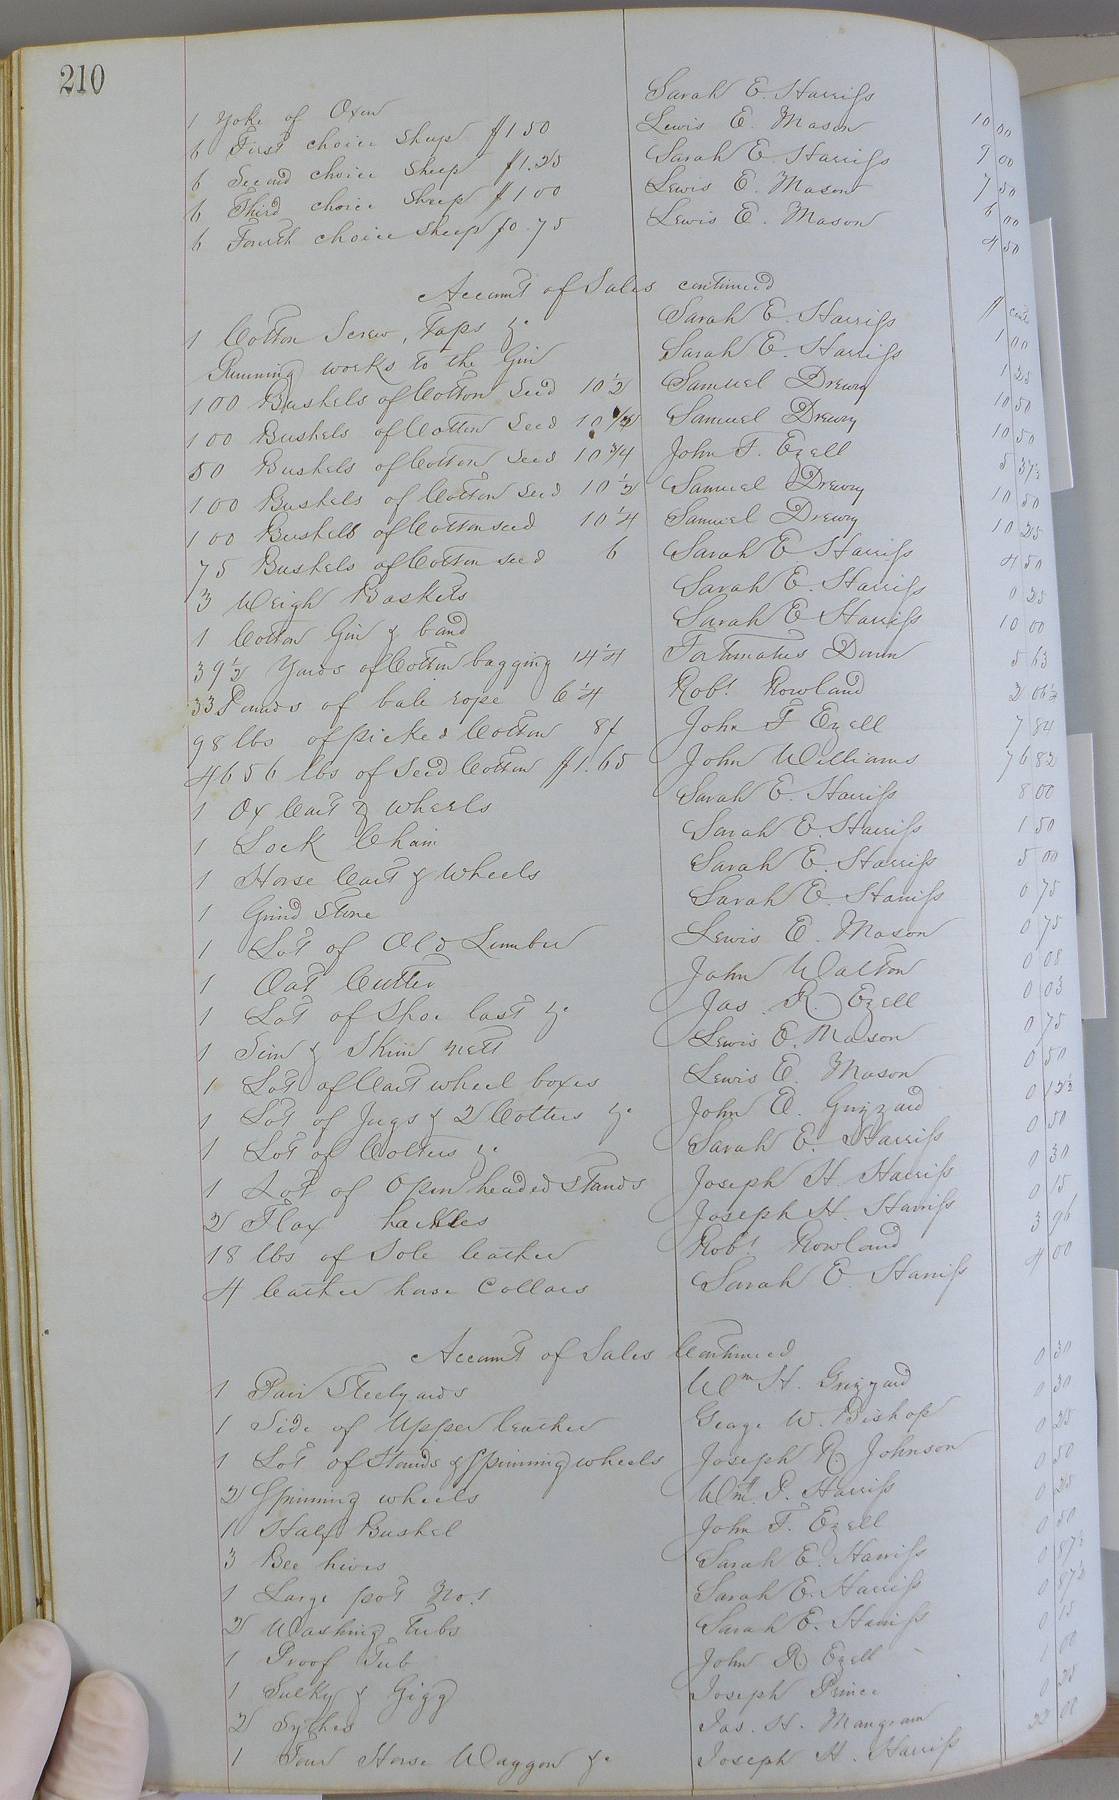 210
1 Yoke of Oxen Sarah E. Harriss 10 00
6 First choice Sheep $1 50 Lewis E. Mason 9 00
6 Second choice Sheep $1.25 Sarah E. Harriss 7 50
6 Third choice Sheep $1 00 Lewis E. Mason 6 00
6 Fourth choice Sheep $0.75 Lewis E. Mason 4 50
Account of Sales continued
$ cents
1 Cotton Screw, Taps &c Sarah E. Harriss 1 00
Running works to the Gin Sarah E. Harriss 1 25
100 Bushels of Cotton Seed 10 1/2 Samuel Drewry 10 50
100 Bushels of Cotton Seed 10 1/2 Samuel Drewry 10 50
50 Bushels of Cotton Seed 10 3/4 John F. Ezell 5 37 1/2
100 Bushels of Cotton Seed 10 1/2 Samuel Drewry 10 50
100 Bushels of Cotton seed 10 1/4 Samuel Drewry 10 25
75 Bushels of Cotton seed 6 Sarah E Harriss 4 50
3 Weigh Baskets Sarah E. Harriss 0 25
1 Cotton Gin & band Sarah E Harriss 10 00
39 1/2 Yards of Cotton bagging 14 1/4 Fortunatus Dunn 5 63
33 Pounds of bale rope 6 1/4 Robt Rowland 2 06 1/4
98 lbs of picked Cotton 8¢ John F Ezell 7 84
4656 lbs of Seed Cotton $1.65 John Williams 76 82
1 Ox Cart & wheels Sarah E. Harriss 8 00
1 Lock Chain Sarah E. Harriss 1 50
1 Horse Cart & Wheels Sarah E. Harriss 5 00
1 Grind Stone Sarah E. Harriss 0 75
1 Lot of Old Lumber Lewis E. Mason 0 75
1 Oat Cutter John Walton 0 08
1 Lot of Shoe last &c Jas. R. Ezell 0 03
1 Sein & Skim nett Lewis E. Mason 0 75
1 Lot of Cart wheel boxes Lewis E. Mason 0 50
1 Lot of Jugs & 2 Cotters &c John E. Grizzard 0 12 1/2
1 Lot of Colters &c Sarah E. Harriss 0 50
1 Lot of Open headed Stands Joseph H. Harriss 0 30
2 Flax hackles Joseph H. Harriss 0 15
18 lbs of Sole leather Robt Rowland 3 96
4 leather horse Collars Sarah E. Harriss 4 00
Account of Sales Continued
1 Pair Steelyards Wm H. Grizzard 0 30
1 Side of Upper leather George W. Bishop 0 30
1 Lot of Stands & Spinning wheels Joseph R. Johnson 0 25
2 Spinning wheels Wm. P. Harriss 0 50
1 Half Bushel John F. Ezell 0 25
3 Bee hives Sarah E. Harriss 0 50
1 Large pot No. 1 Sarah E. Harriss 0 87 1/2
2 Washing Tubs Sarah E. Harriss 0 87 1/2
1 Proof Tub John R Ezell 0 15
1 Sulky & Gigg Joseph Prince 1 00
2 Sythes Jas. H. Mangram 0 25
1 Four Horse Waggon &c Joseph H. Harriss 22 00